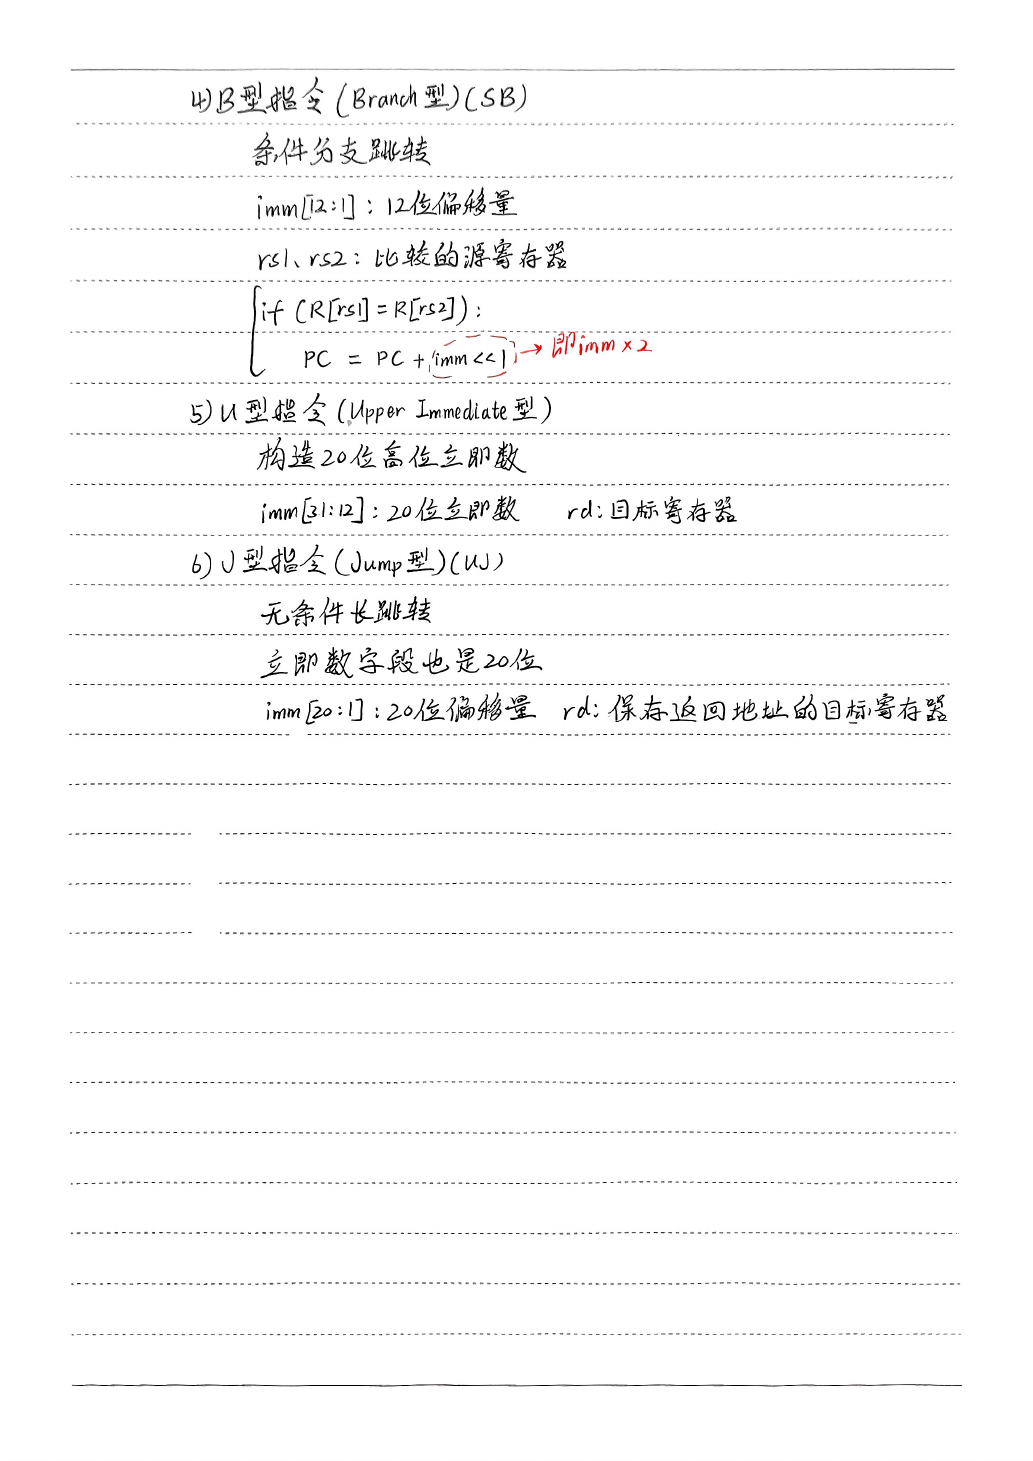 4)B型指令(Branch型)(SB)
条件分支跳转
imm[12:1]:12位偏移量
rs1、rs2:比较的源寄存器
if (R[rs1]=R[rs2]):
PC = PC+imm<<1→即imm×2
5)U型指令(Upper Immediate型)
构造20位高位立即数
imm[31:12]:20位立即数 rd:目标寄存器
6)J型指令(Jump型)(UJ)
无条件长跳转
立即数字段也是20位
imm[20:1]:20位偏移量 rd:保存返回地址的目标寄存器